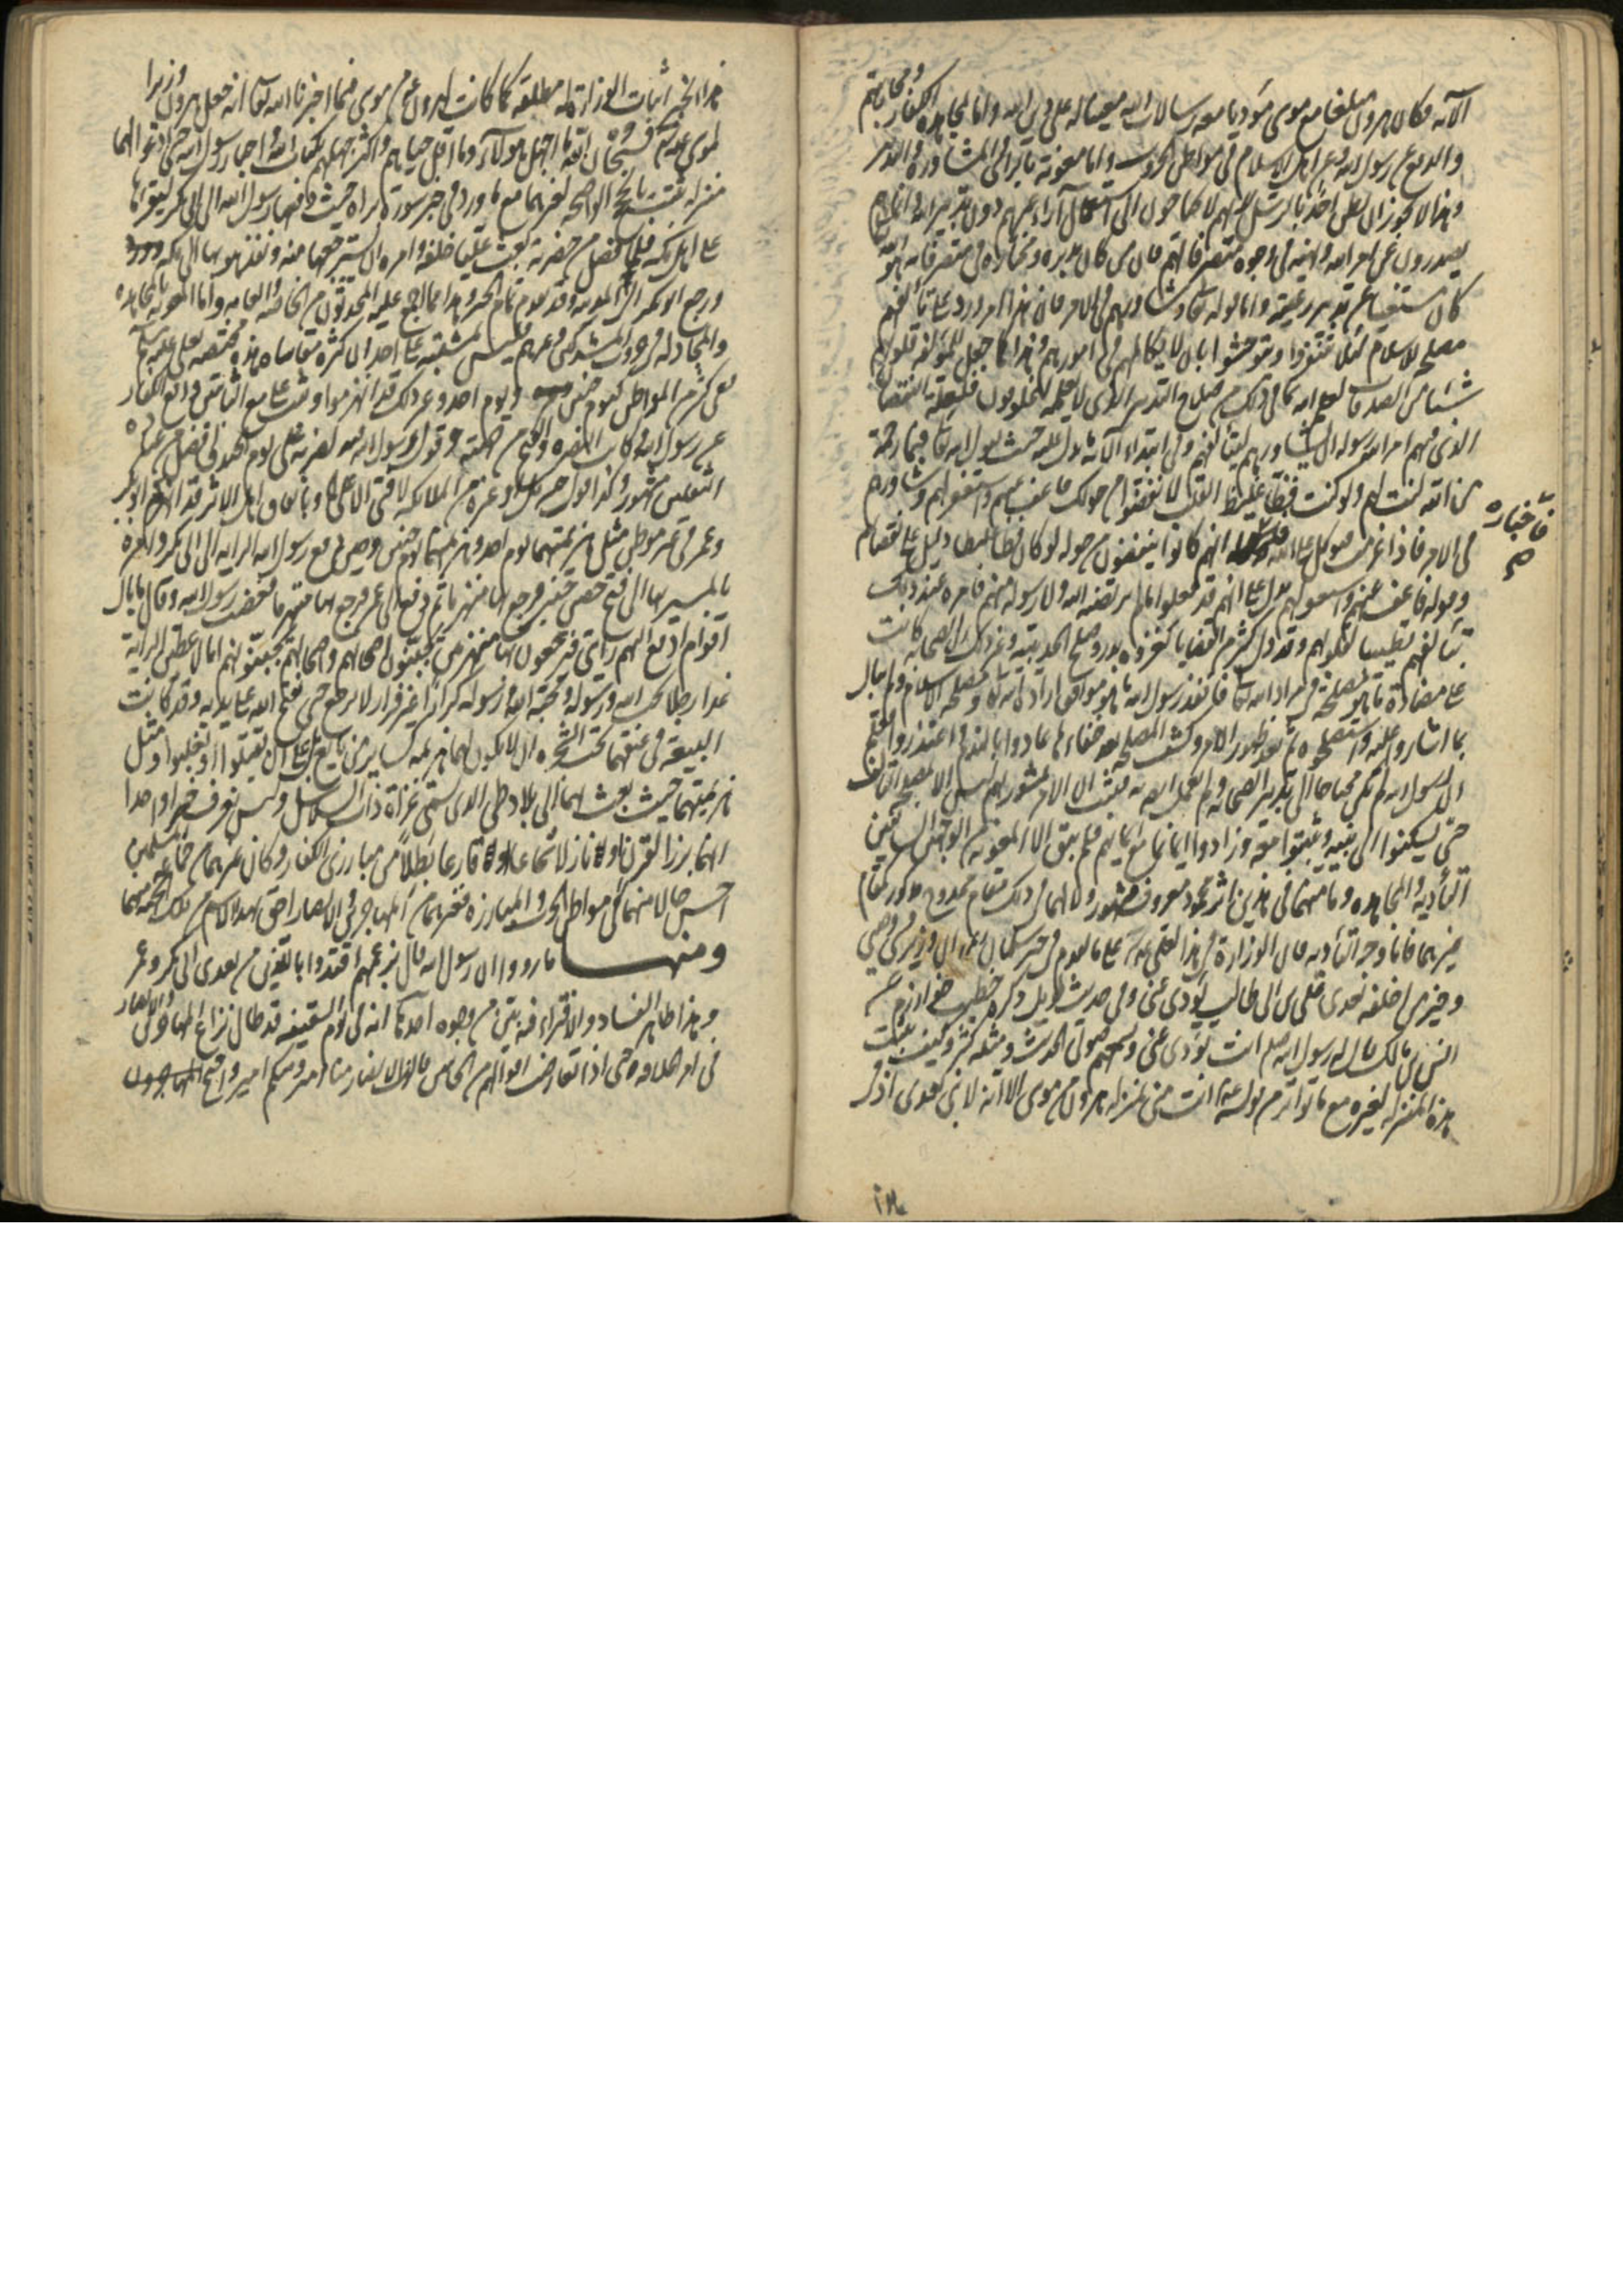 الآية فكان هرون مبلغا مع موسى مؤديا معه رسالات الله معينا له على دين الله واما لمجاهدة الكفار ومحاربتهم
والدفع عن رسول الله وعن اهل الاسلام في مواطن الحروب واما معونة بالراي والمشاورة والتدبير
وهذا لا يجوز ان يظن احد بالرسل انهم لا يحتاجون الى آراء غيرهم دون تدبير الله وانما هم
يصدرون عن امر الله ونهيه في وجوه متصرفاتهم فان من كان مدبره ومختاره في متصرفاته هو الله
كان مستغنيا عن تدبير رعيته واما قوله تعالى وشاورهم في الامر فان هذا امر ورد على تألفهم
مصلحة للاسلام لئلا يتفرقوا ويتوحشوا بان لا يكالمهم في امورهم وهذا كما جعل للمؤلفة قلوبهم
شيئا من الصدقات لعلم الله بما في ذلك من صلاح التدبير الذي لا يعلمه المخلوقون
الذي فيهم امر الله رسوله ان يشاورهم ليتألفهم وفي ابتداء الآية ما يدل عليه حيث يقول الله تعالى فبما رحمة
من الله لنت لهم ولو كنت فظا غليظ القلب لانفضوا من حولك فاعف عنهم واستغفر لهم وشاورهم
في الامر فاذا عزمت فتوكل على الله انهم كانوا ينفضون من حوله لو كان فظا غليظا دليل على نقصانهم
فأخباره
صح
وقوله فاعف عنهم واستغفر لهم يدل على انهم قد فعلوا ما لم يرتضه الله ولا رسوله منهم فامره عند ذلك
بتألفهم تطييبا لقلوبهم وقد دل كثير من القضايا كغزوة بدر وصلح الحديبية وغير ذلك ان الصحابة كانت
على مضادة ما هو مصلحة في مراد الله تعالى فلم ينفذ رسول الله ما هو موافق ارادة الله تعالى ومصلحة الاسلام
بما اشاروا عليه واستصلحوه ثم بعد ظهور الامر وكشف المصلحة بعد خفاءها عادوا بالندم واعتذروا
ان رسول الله لم يكن محتاجا الى تدبير الصحابة
حتى يسكنوا الى نبيه ويثبتوا معه وزادوا ايمانا مع ايمانهم فلم يبق الا المعونة من الوجهين السابقين
التأدية والمجاهدة وما منهما في هذين اثر محمود معروف مشهور ولا لهما في ذلك مقام ممدوح مذكور كمقام
غيرهما فاما وجه التأدية فان الوزارة من هذا لعلي على ما تقدم في خبر سلمان ان وزيري وصيي
وخير من اخلفه بعدي علي بن ابي طالب يؤدي عني وفي حديث طويل ذكره خطيب خوارزم عن
انس بن مالك قال له رسول الله صلعم انت تؤدي عني وتسمعهم صوتي الحديث ومثله كثير وكيف يثبت
هذه المنزلة لغيره مع ما تواتر من قوله انت مني بمنزلة هرون من موسى الا انه لا نبي بعدي اذ في
هذا الخبر اثبات الوزارة له مطلقة كما كانت لهرون من موسى فيما اخبرنا الله تعالى انه جعل هرون وزيرا
لموسى فسبحان الله ما اجهل هؤلاء وما اقل حياهم واكثر جهلهم بكتاب الله واخبار رسول الله حتى ادعوا لهما
منزلة ثبتت بالحجج الواضحة لغيرهما مع ما ورد في خبر سورة براءة حيث دفعها رسول الله الى ابي بكر ليقرأها
على اهل مكة فلما انفصل من حضرته بعث عليا خلفه وامره ان يسترجعها منه وينفذ هو بها الى مكة
ورجع ابو بكر الى المدينة وقد تقدم تمام الخبر وهذا مما اجمع عليه المحدثون من الخاصة والعامة واما المعونة بالمجاهدة
والمجادلة في حروب المشركين وغيرهم فليس يشتبه على احد ان كثرة مقاساة هذه مختصة بعلي عليه السلم
ففي كثير من المواطن كيوم حنين ويوم احد وغير ذلك قد انهزموا وثبت علي مع الثابتين ودافع الكفار
عن رسول الله وكانت النصرة والفتح من جهته
الثقلين مشهور وكذا قول جبرئيل وغيره من الملائكة لا فتى الا علي وباتفاق اهل الاثر قد انهزم ابو بكر
وعمر في غير موطن مثل هزيمتهما يوم احد وهزيمتهما يوم حنين وحين دفع رسول الله الراية الى ابي بكر وامره
بالمسير بها الى فتح حصن خيبر فرجع بها منهزما ثم دفع الى عمر فرجع بها منهزما فغضب رسول الله وقال ما بال
اقوام ادفع اليهم رايتي فيرجعون بها منهزمين يجبنون اصحابهم واصحابهم يجبنونهم اما لاعطين الراية
غدا رجلا يحب الله ورسوله ويحبه الله ورسوله كرارا غير فرار لا يرجع حتى يفتح الله على يديه وقد كانت
البيعة في عنقهما تحت الشجرة ان لا يكون لهما هزيمة كسائر من بايع بل على ان يقتلوا او يغلبوا ومثل
هزيمتهما حيث بعث بهما الى بلاد طي الذي سمى غزاة ذات السلاسل وليس نعرف خبرا واحدا
انهما برزا لقرن او نازلا شجاعا او قارعا بطلا من مبارزي الكفار وكان غيرهما من المسلمين
احسن حالا منهما في مواطن الحرب والمبارزة فغيرهما من المهاجرين والانصار احق بهذا الاسم
ومنها ما رووا ان رسول الله قال بزعمهم اقتدوا بالذين من بعدي ابي بكر وعمر
وهذا ظاهر الفساد والافتراء فيه بين من وجوه احدها انه في يوم السقيفة قد طال نزاع المهاجرين والانصار
في امر الخلافة حتى اذا تعارضت اقوالهم من الجانبين قالت الانصار منا امير ومنكم امير واحتج المهاجرون